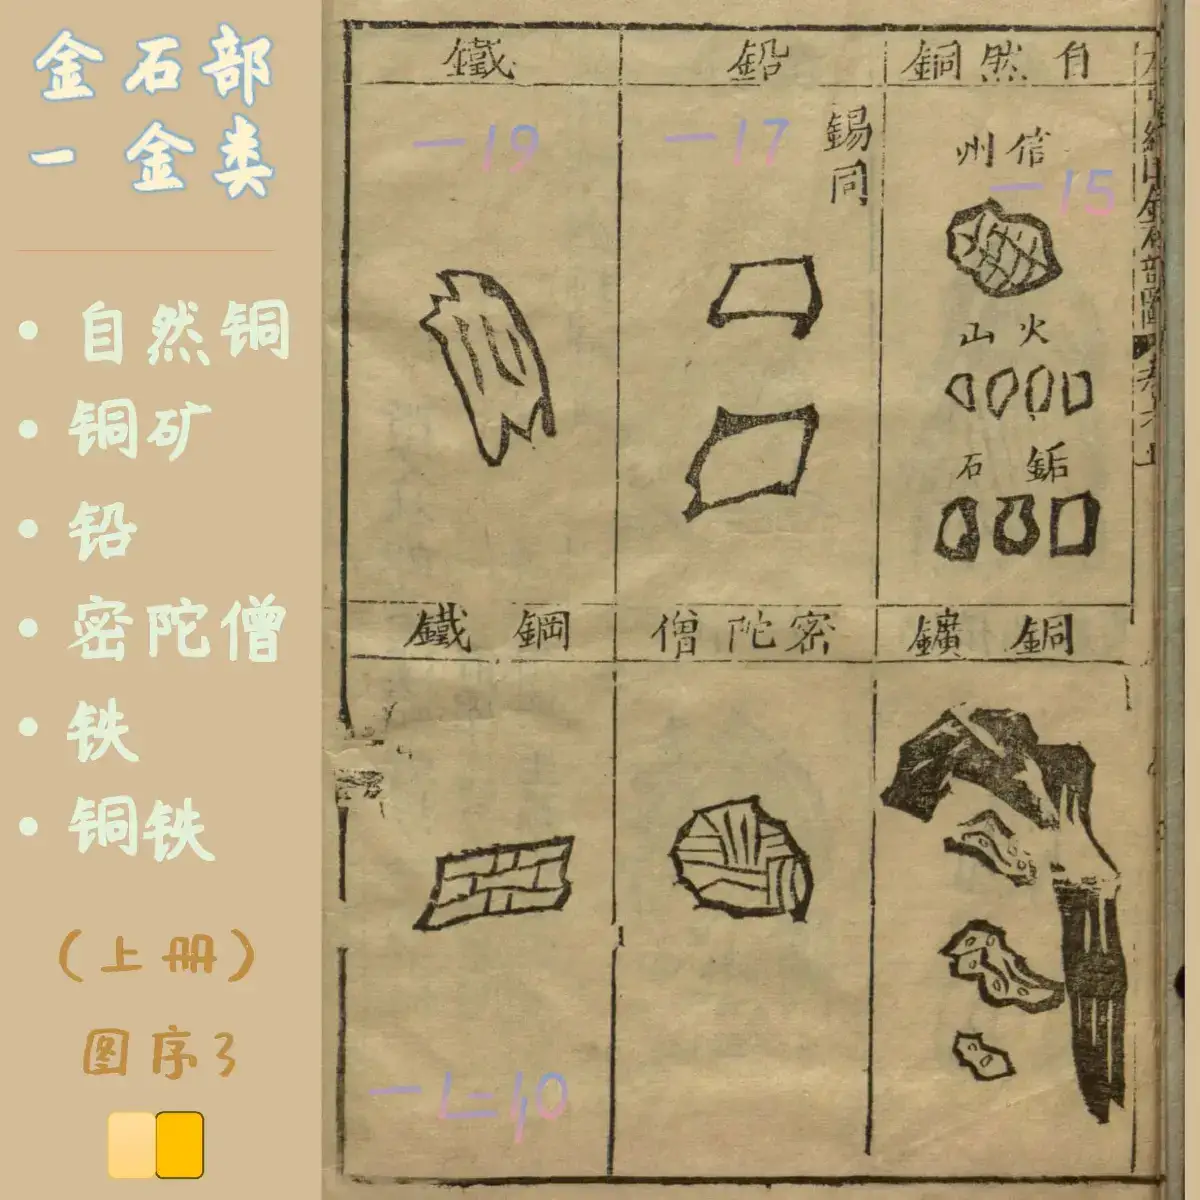 金石部
一 金类
• 自然铜
• 铜矿
• 铅
• 密陀僧
• 铁
• 铜铁
（上册）
图序3
自然銅
信州
一15
火山
鉐石
鉛
錫同
一17
鐵
一19
銅鑛
密陀僧
鋼鐵